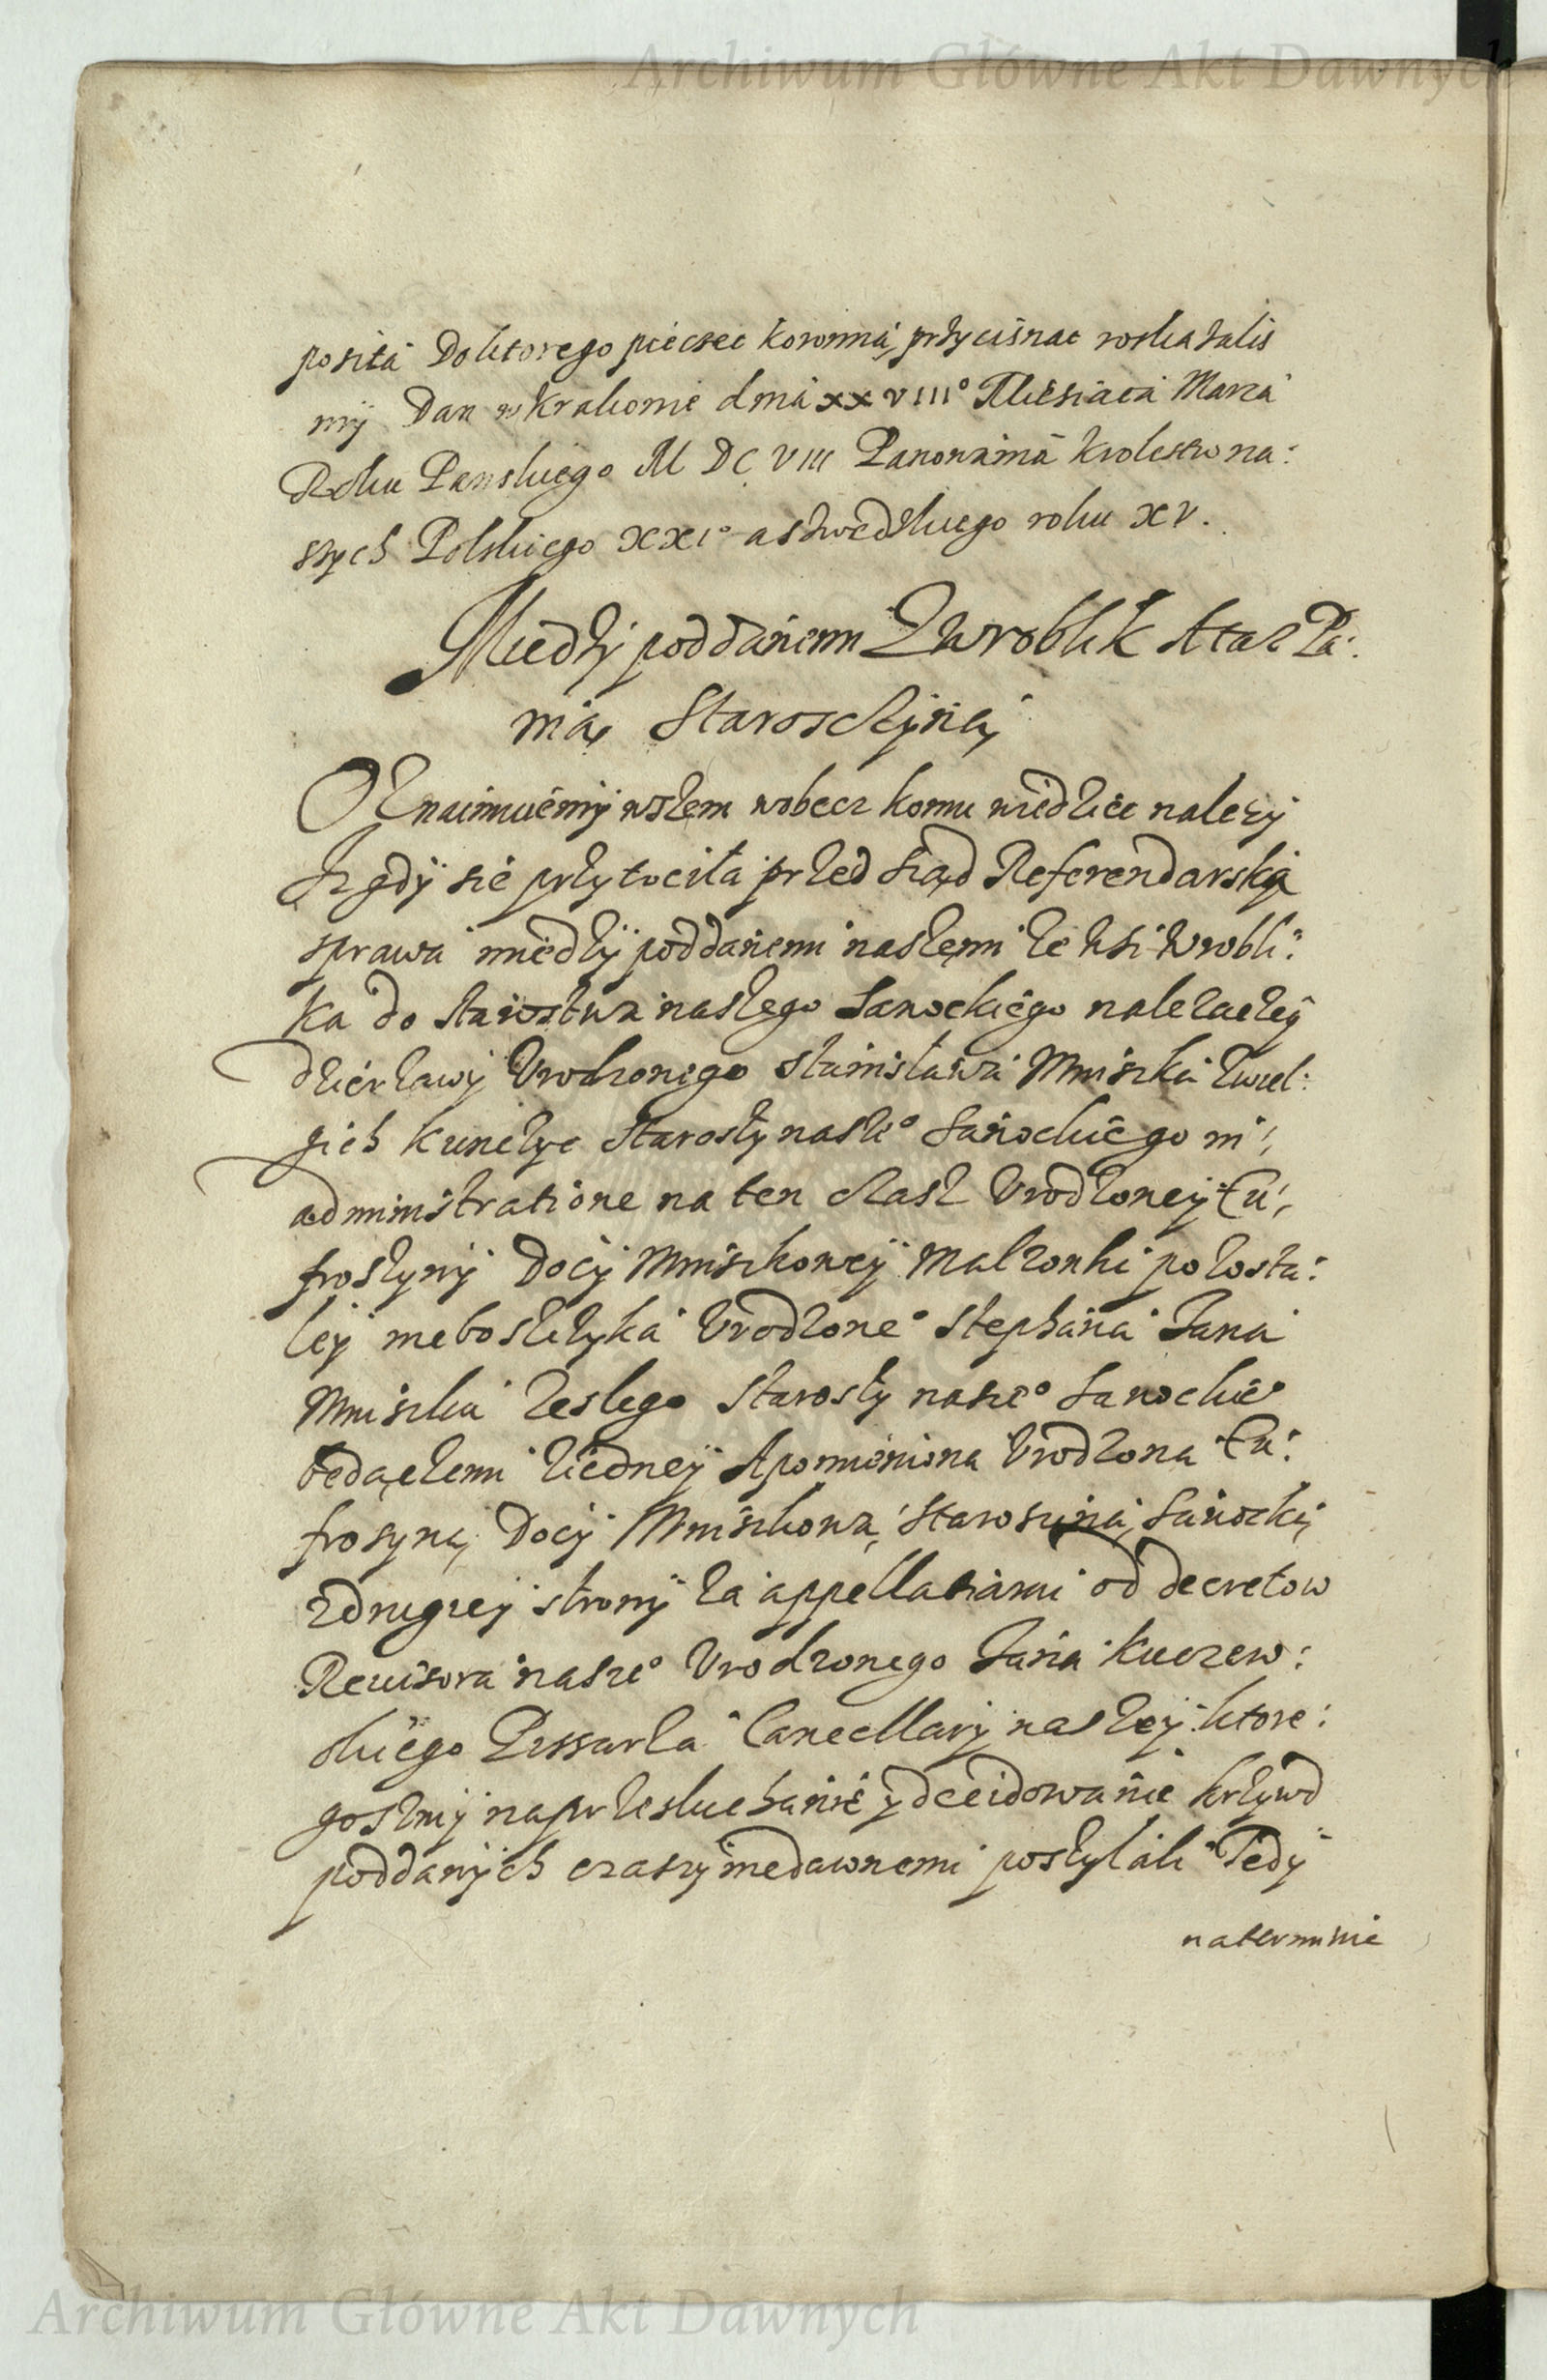 Archiwum Główne Akt Dawnych
posita Doktorego pieczec koronną przycisnac roskazalis
my Dan w Krakowie dnia XXVIIIº Miesiąca Marca
Roku Panskiego MDCVIII Panowania krolestw na:
szych Polskiego XXIº a szwedzkiego roku XV.
Miedzy poddanemi Zwroblik Ataz Pa:
nią Starosczyną
Oznaimuiemy wszem wobecz komu wiedziec nalezy
Iz gdy sie przytoczila przed Sąd Referendarsky
sprawa miedzy poddanemi naszemi ze wsi Wrobli:
ka do starostwa naszego Sanockiego nalezaczey
dzierzawy Vrodzonego Stanisława Mniszka zwiel:
gich Kunczyc Starosty naszeº Sanockiego in
administratione na ten czasz Vrodzoney Eu:
frozyny Docy Mniszkowey Malzonki pozosta:
ley nieboszczyka Vrodzoneº Stephana Jana
Mniszka zeslego Starosty naszeº Sanockieº
będączemi ziedney Apomieniona Vrodzona Eu:
frosyną Docy Mniszkową Starosciną Sanocką
zdrugiey strony za appellaciami od decretow
Rewisora naszeº Vrodzonego Jana Kuczew:
skiego Pissarza Cancellary naszey ktore:
goszmy naprzesluchanie y deeidowanie krzywd
poddanych czaszy niedawnemi poszylali Tedy
naterminie
Archiwum Główne Akt Dawnych